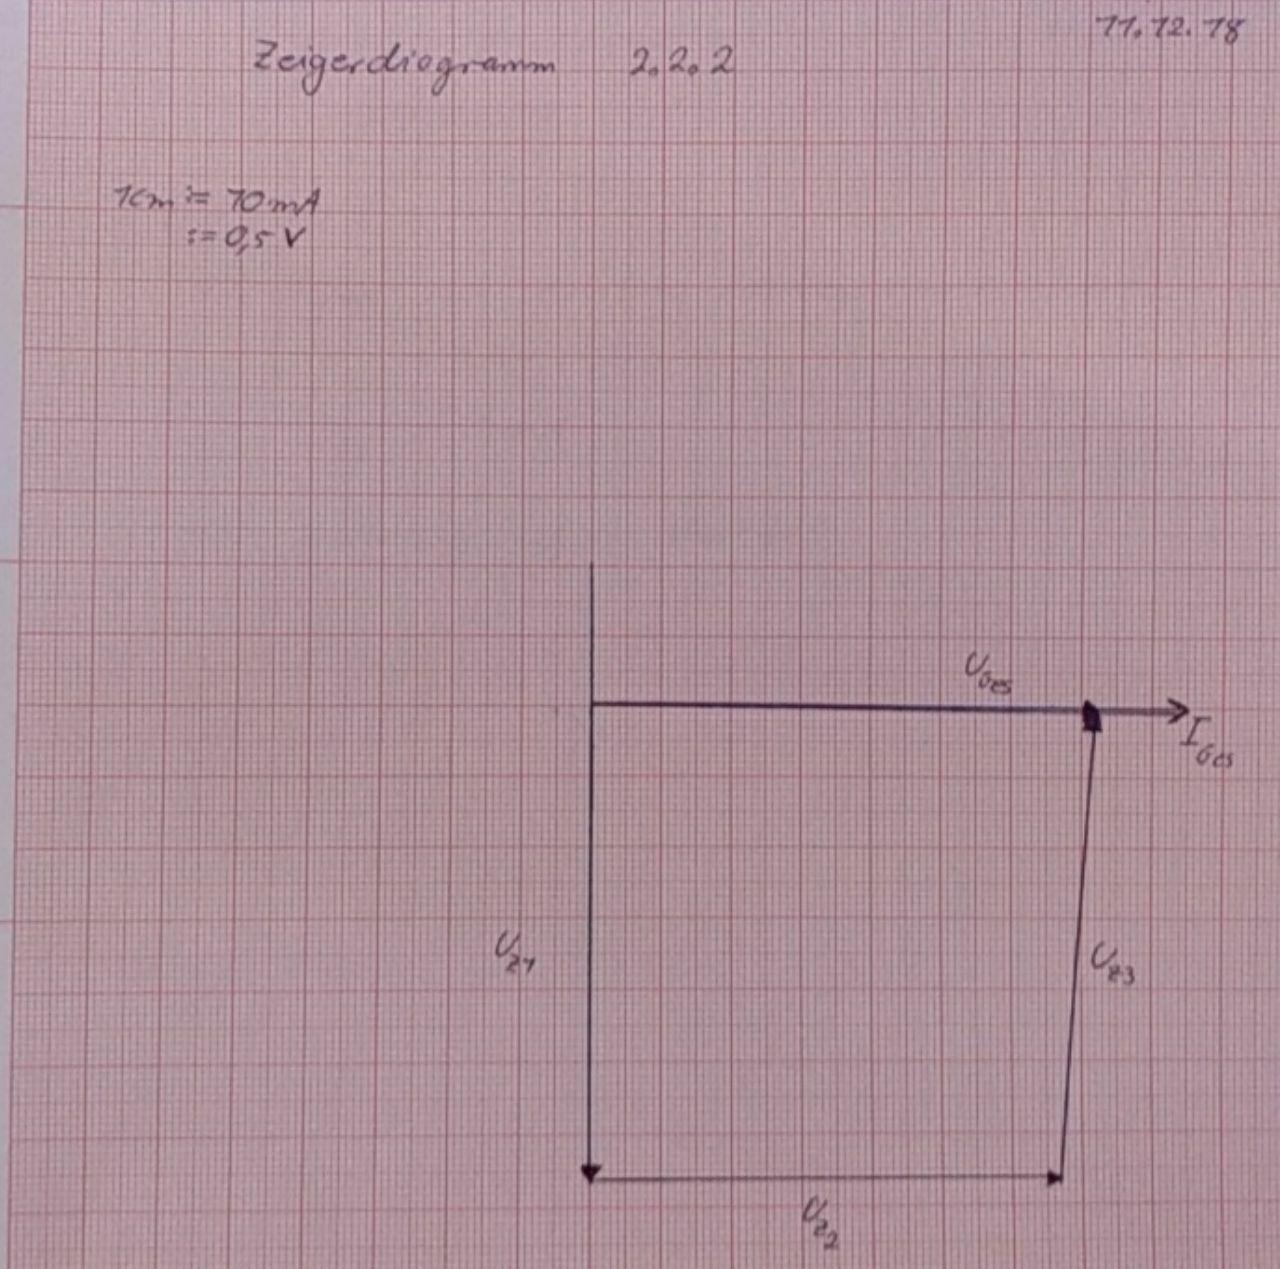 11.12.18
Zeigerdiagramm 2.2.2
1cm := 10mA
:= 0,5 V
UGes
IGes
UZ1
UZ3
UZ2